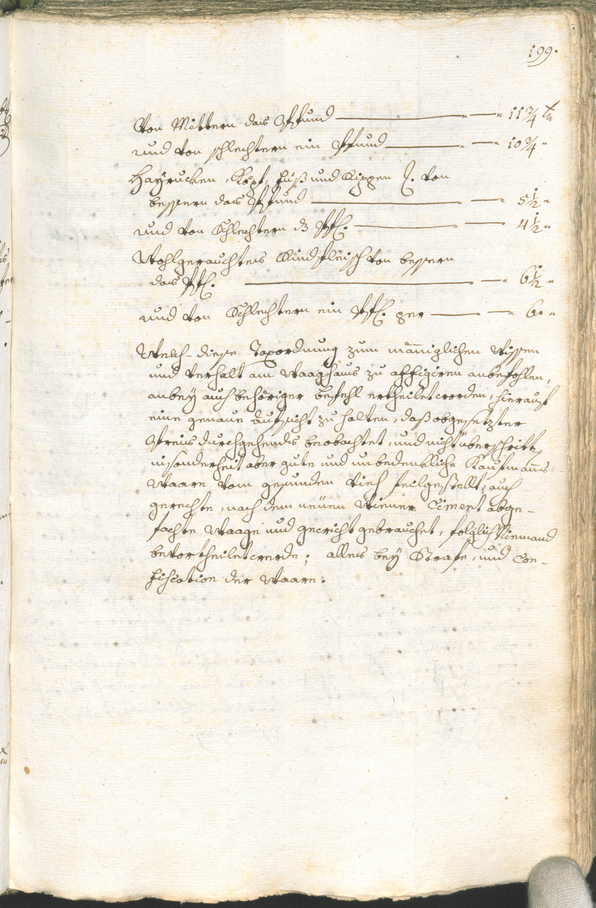 199.
Von Mittern das Pfund — 11 3/4 x
und von schlechtern ein Pfund — 10 3/4 "
Kopf, Füß und Rippen von
bessern das Pfund — 5 1/2 "
und von Schlechtern d Pf. — 4 1/2 "
Wohlgerauchtes Rindfleisch von bessern
das Pf. — 6 1/2 "
und von Schlechtern ein Pf. per — 6. "
Welch-diese Taxordnung zum männiglichen Wissen
und Verhalt am Waaghaus zu affigiren anbefohlen,
anbey auch behöriger Befehl ertheilet worden, hierauf
eine genaue Aufsicht zu halten, daß obgesetzter
Preis durchgehends beobachtet, und nicht überschritten,
insonderheit aber gute und unbedenkliche Kaufmanns-
Waare vom gesunden Vieh feilgestellt, auch
gerechte, nach dem neuen Wiener Ciment abge-
fachte Waage und Gewicht gebraucht, folglich Niemand
bevortheilet werde; alles bey Strafe, und Con-
fiscation der Waare.